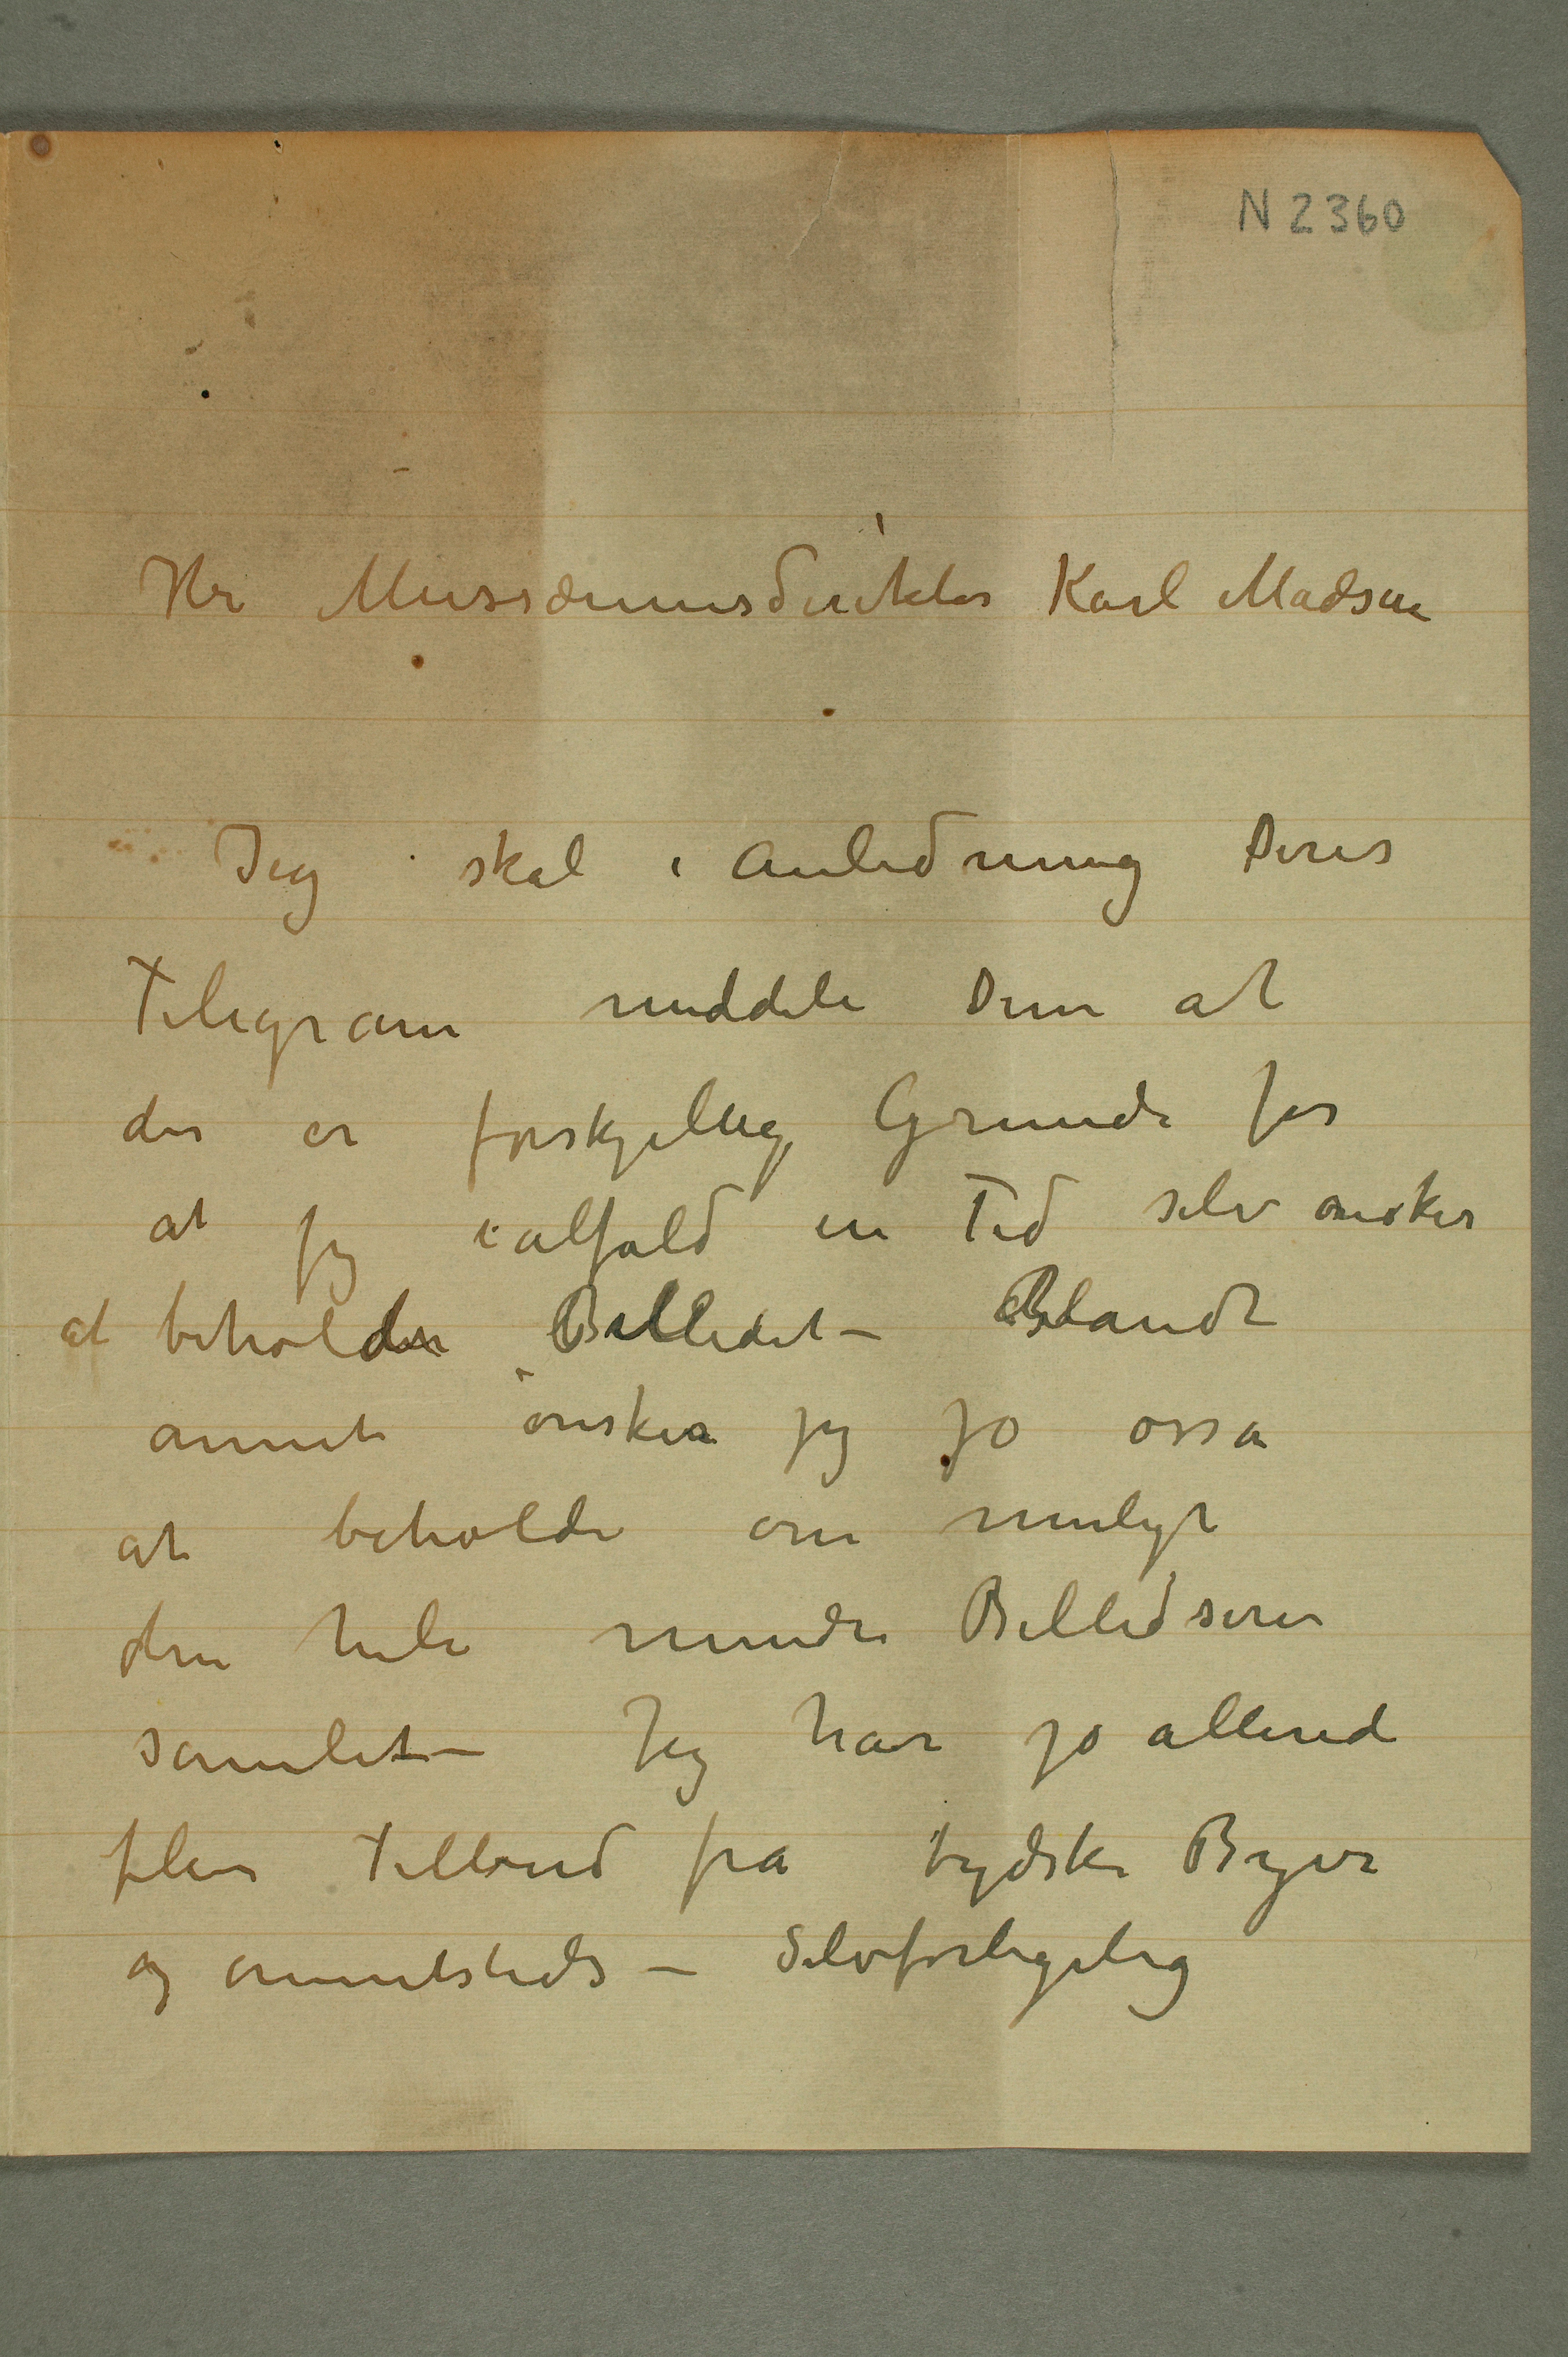 N 2360
Hr Musæumsdirektør Karl Madsen
Jeg skal i Anledning Deres
Telegram meddele Dem at
der er forskjellige Grunde for
at jeg ialfald en Tid selv ønsker
at beholde Billedet – Blandt
annet ønsker jeg jo osså
at beholde om muligt
den hele mindre Billedserie
samlet – Jeg har jo allerede
flere Tilbud fra tydske Byer
og annetsteds – Selvfølgelig